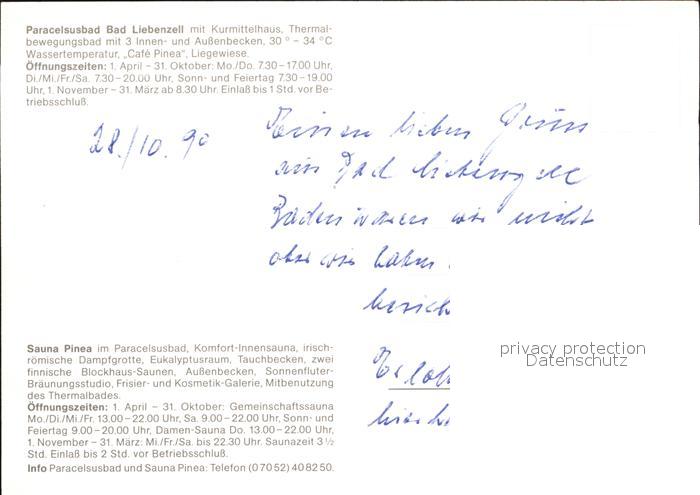 Paracelsusbad Bad Liebenzell mit Kurmittelhaus, Thermal-
bewegungsbad mit 3 Innen- und Außenbecken, 30 ° – 34 °C
Wassertemperatur, „Café Pinea“, Liegewiese.
Öffnungszeiten: 1. April – 31. Oktober: Mo./Do. 7.30 – 17.00 Uhr,
Di./Mi./Fr./Sa. 7.30 – 20.00 Uhr, Sonn- und Feiertag 7.30 – 19.00
Uhr, 1. November – 31. März ab 8.30 Uhr. Einlaß bis 1 Std. vor Be-
triebsschluß.
28./10. 90
Einen lieben Gruss
aus Bad Liebenzell
Baden waren wir nicht
aber wir haben
Sauna Pinea im Paracelsusbad, Komfort-Innensauna, irisch-
römische Dampfgrotte, Eukalyptusraum, Tauchbecken, zwei
finnische Blockhaus-Saunen, Außenbecken, Sonnenfluter-
Bräunungsstudio, Frisier- und Kosmetik-Galerie, Mitbenutzung
des Thermalbades.
Öffnungszeiten: 1. April – 31. Oktober: Gemeinschaftssauna
Mo./Di./Mi./Fr. 13.00 – 22.00 Uhr, Sa. 9.00 – 22.00 Uhr, Sonn- und
Feiertag 9.00 – 20.00 Uhr, Damen-Sauna Do. 13.00 – 22.00 Uhr,
1. November – 31. März: Mi./Fr./Sa. bis 22.30 Uhr. Saunazeit 3 ½
Std. Einlaß bis 2 Std. vor Betriebsschluß.
Info Paracelsusbad und Sauna Pinea: Telefon (0 70 52) 40 82 50.
privacy protection
Datenschutz